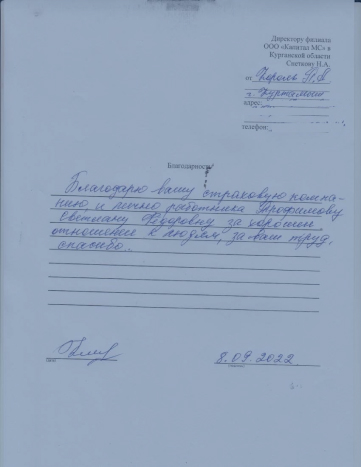 Директору филиала
ООО «Капитал МС» в
Курганской области
Светкову Н.А.
от Король П.А
г. Куртамыш
адрес:
телефон:
Благодарность
Благодарю вашу страховую компа-
нию, и лично работника Трофимову
Светлану Фёдоровну за хорошее
отношение к людям, за ваш труд,
спасибо.
8.09.2022